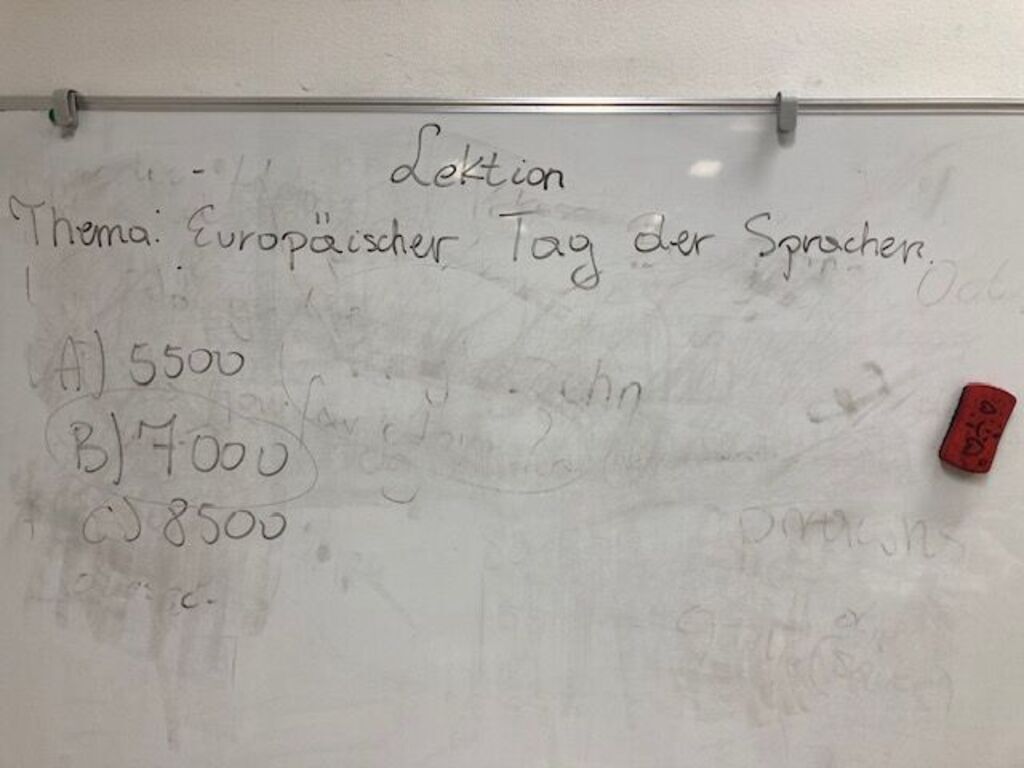 Lektion
Thema: Europäischer Tag der Sprachen.
A) 5500
B) 7000
C) 8500